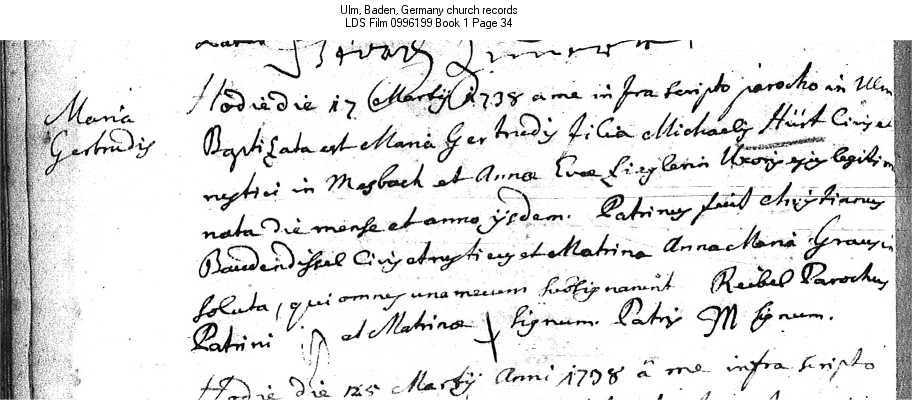 Ulm, Baden, Germany church records
LDS Film 0996199 Book 1 Page 34
Maria
Gertrudis
Hodie die 17 Martij 1738 a me infra scripto parocho in Ulm
Baptizata est Maria Gertrudis filia Michaelis Hürst Civis et
rustici in Mosbach et Annæ Evæ Zieglerin Uxoris ejus legitim
nata die mense et anno ijsdem. Patrinus fuit Christianus
Baudendissel Civis et rusticus et Matrina Anna Maria Grausin
soluta, qui omnes una mecum subsignarunt Reibel Parochus
Patrini et Matrinæ signum. Patris M signum.
Hodie die 25 Martij Anni 1738 â me infra scripto